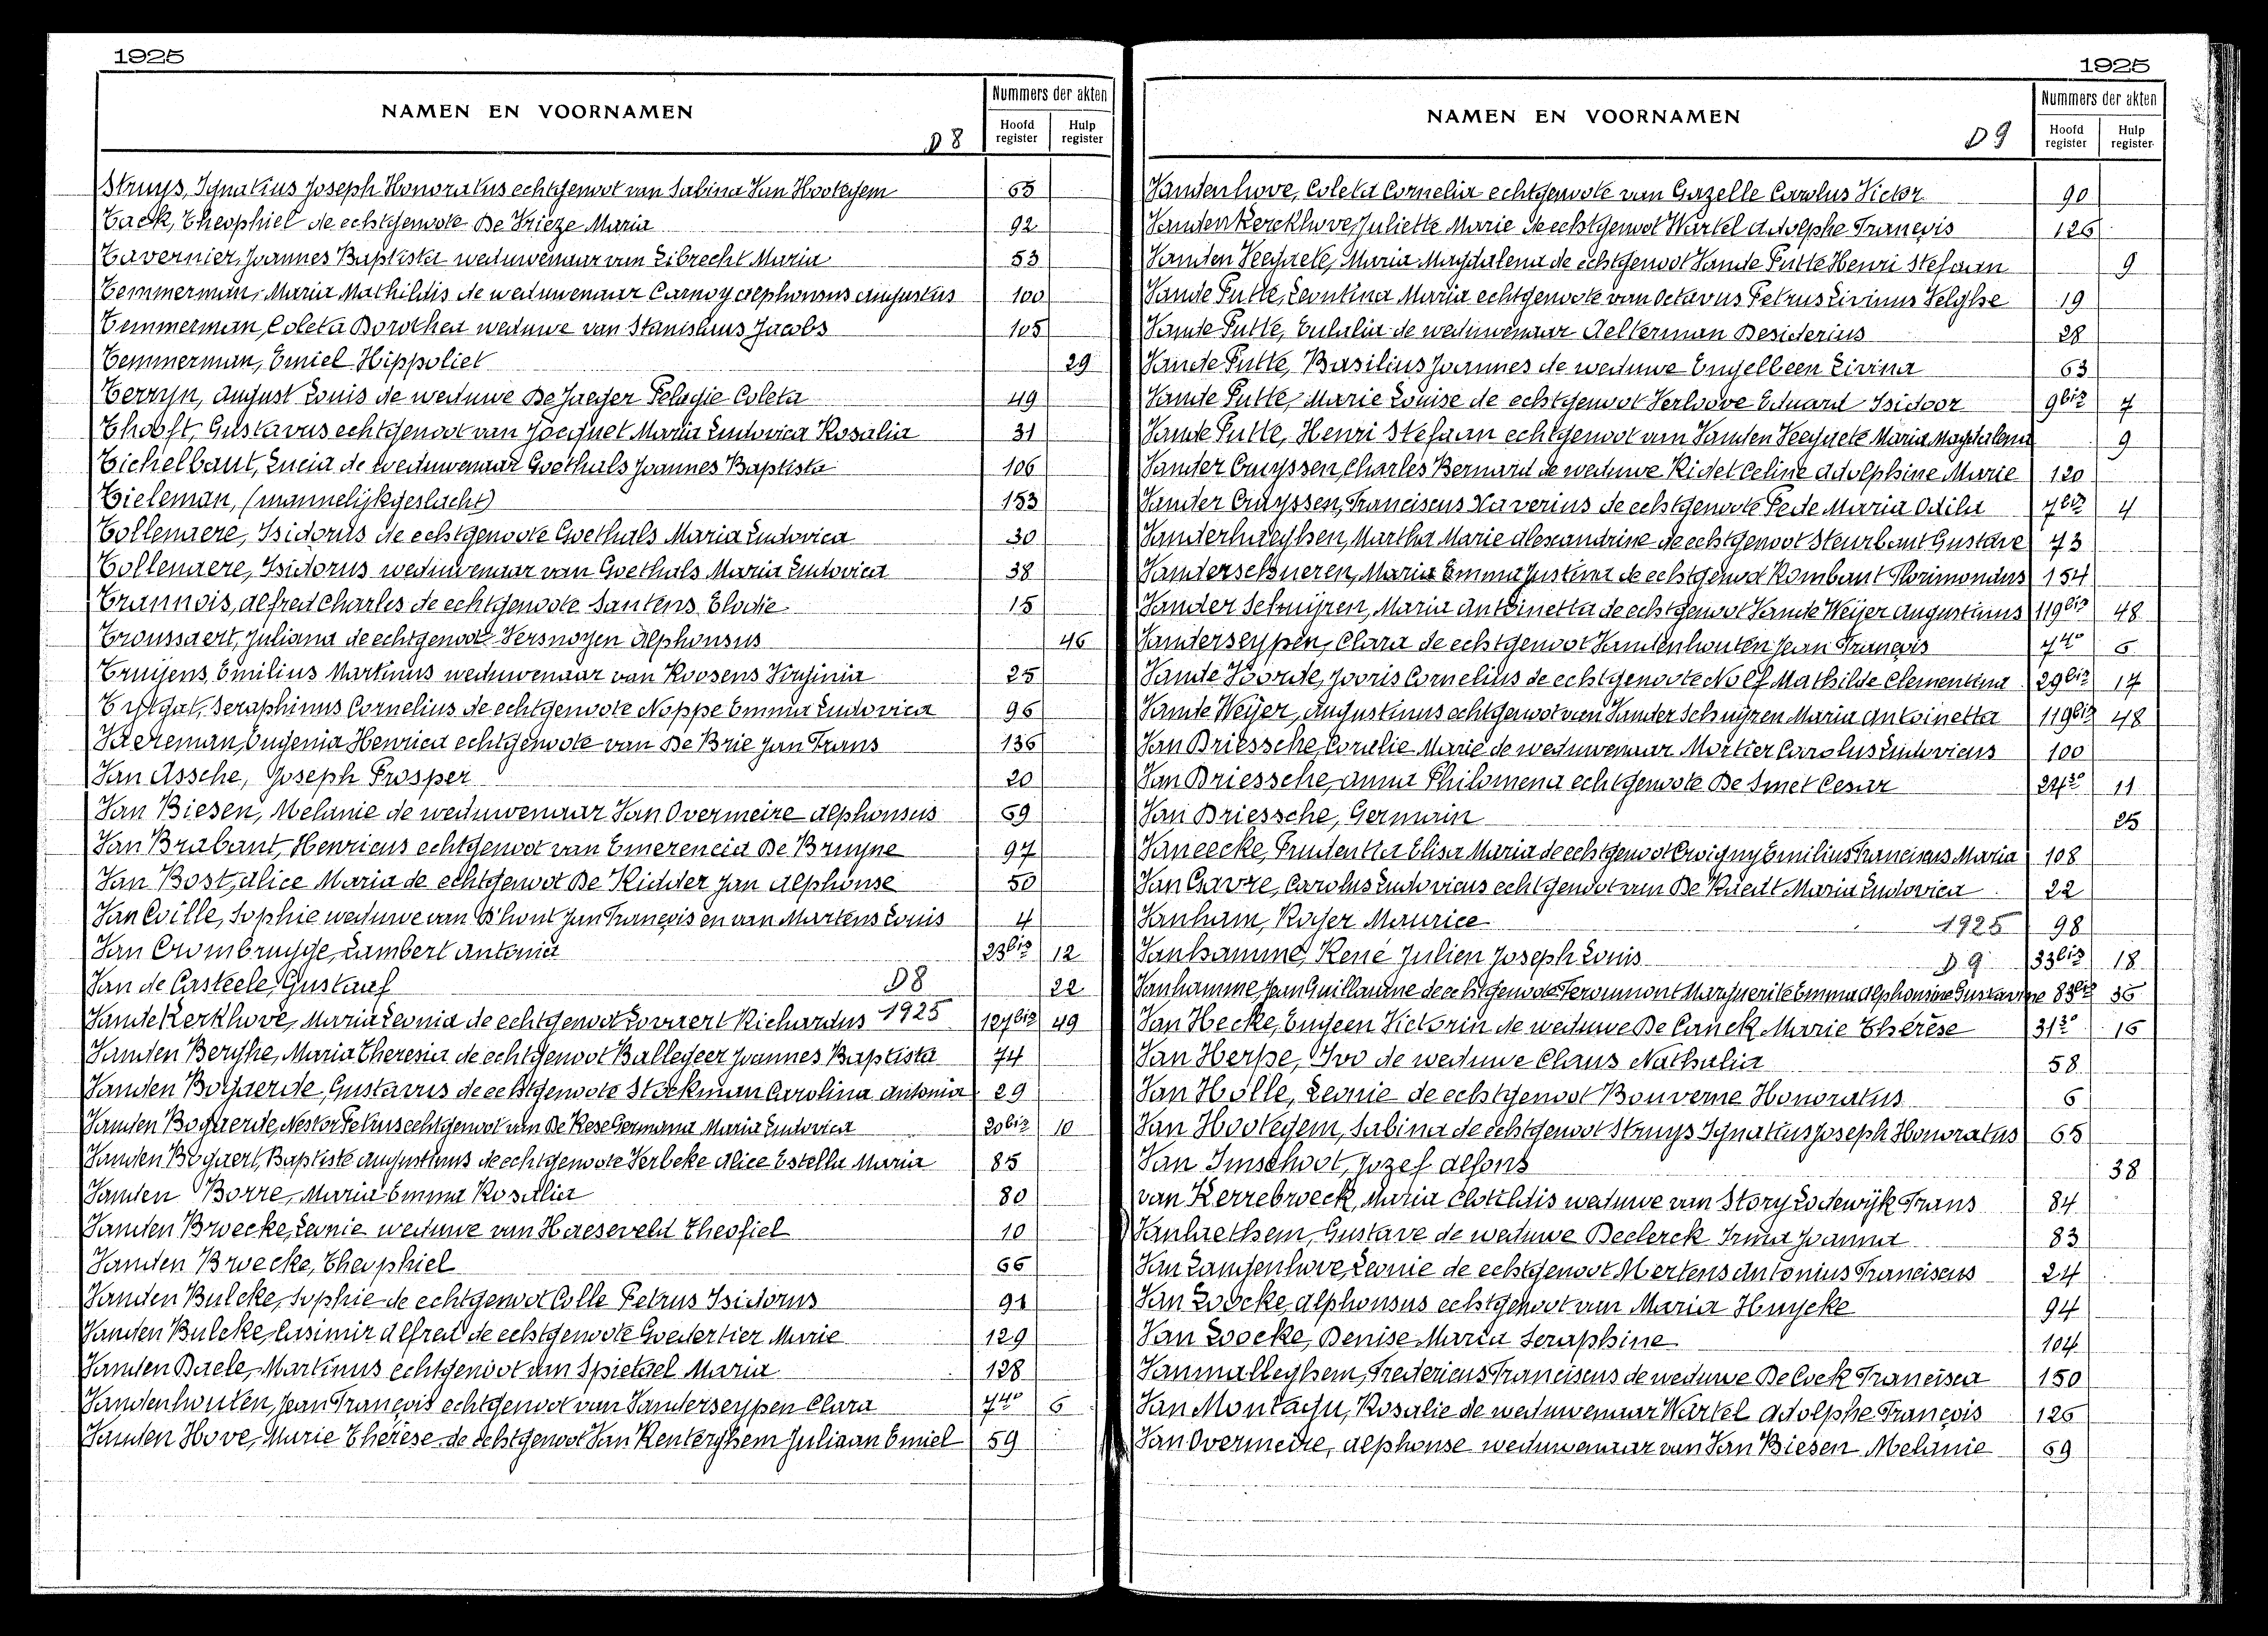 1925
NAMEN EN VOORNAMEN
D 8
Nummers der akten
Hoofd register
Hulp register
Struys, Ignatius Joseph Honoratus echtgenoot van Sabina Van Hootegem 65
Tack, Theophiel de echtgenoote De Vrieze Maria 92
Tavernier, Joannes Baptista weduwenaar van Librecht Maria 53
Temmerman, Maria Mathildis de weduwenaar Carnoy Alphonsus Augustus 100
Temmerman, Coleta Dorothea weduwe van Stanislaus Jacobs 105
Temmerman, Emiel Hippoliet 29
Terryn, August Louis de weduwe De Jaeger Pelagie Coleta 49
Thooft, Gustavus echtgenoot van Jocquet Maria Ludovica Rosalia 31
Tichelbaut, Lucia de weduwenaar Goethals Joannes Baptista 106
Tieleman, (mannelijk geslacht) 153
Tollenaere, Isidorus de echtgenoote Goethals Maria Ludovica 30
Tollenaere, Isidorus weduwenaar van Goethals Maria Ludovica 38
Trannois, Alfred Charles de echtgenoote Santens Elodie 15
Troussaert, Juliana de echtgenoot Versnoyen Alphonsus 46
Truijens, Emilius Martinus weduwenaar van Roosens Virginia 25
Tytgat, Seraphinus Cornelius de echtgenoote Noppe Emma Ludovica 96
Vaereman, Eugenia Henrica echtgenoote van De Brie Jan Frans 136
Van Assche, Joseph Prosper 20
Van Biesen, Melanie de weduwenaar Van Overmeire Alphonsus 69
Van Brabant, Henricus echtgenoot van Emerencia De Bruyne 97
Van Bost, Alice Maria de echtgenoot De Ridder Jan Alphonse 50
Van Cville, Sophie weduwe van D'hont Jan François en van Martens Louis 4
Van Crombrugge, Lambert Antonia 23bis 12
Van de Casteele, Gustaaf D8 22
Vande Kerkhove, Maria Leonia de echtgenoot Lovaert Richardus 1925 127bis 49
Vanden Berghe, Maria Theresia de echtgenoot Ballegeer Joannes Baptista 74
Vanden Bogaerde, Gustavus de echtgenoote Stockman Carolina Antonia 29
Vanden Bogaerde, Nestor Petrus echtgenoot van De Kese Germana Maria Ludovica 20bis 10
Vanden Bogaert, Baptiste Augustinus de echtgenoote Verbeke Alice Estella Maria 85
Vanden Borre, Maria Emma Rosalia 80
Vanden Broecke, Leonie weduwe van Haeseveld Theofiel 10
Vanden Broecke, Theophiel 66
Vanden Bulcke, Sophie de echtgenoot Colle Petrus Isidorus 91
Vanden Bulcke, Casimir Alfred de echtgenoote Goedertier Marie 129
Vanden Daele, Martinus echtgenoot van Spietael Maria 128
Vandenhouten, Jean François echtgenoot van Vanderseypen Clara 74° 6
Vanden Hove, Marie Thérèse de echtgenoot Van Renterghem Juliaan Emiel 59
1925
NAMEN EN VOORNAMEN
D 9
Nummers der akten
Hoofd register
Hulp register
Vandenhove, Coleta Cornelia echtgenoote van Gazelle Carolus Victor 90
Vandenkerckhove, Juliette Marie de echtgenoot Wartel Adolphe François 126
Vanden Veegaete, Maria Magdalena de echtgenoot Vande Putte Henri Stefaan 9
Vande Putte, Leontina Maria echtgenoote van Octavus Petrus Livinus Velghe 19
Vande Putte, Eulalia de weduwenaar Aelterman Desiderius 28
Vande Putte, Basilius Joannes de weduwe Engelbeen Livina 63
Vande Putte, Marie Louise de echtgenoot Verloove Eduard Isidoor 9bis 7
Vande Putte, Henri Stefaan echtgenoot van Vanden Veegaete Maria Magdalena 9
Vander Cruyssen, Charles Bernard de weduwe Ridet Celine Adolphine Marie 120
Vander Cruyssen, Franciscus Xaverius de echtgenoote Pede Maria Odila 7bis 4
Vanderhaeghen, Martha Marie Alexandrine de echtgenoot Steurbaut Gustave 73
Vanderschueren, Maria Emma Justina de echtgenoot Rombaut Florimondus 154
Vander Schuijren, Maria Antoinetta de echtgenoot Vande Weijer Augustinus 119bis 48
Vanderseypen, Clara de echtgenoot Vandenhouten Jean François 74° 6
Vande Voorde, Jooris Cornelius de echtgenoote Nolf Mathilde Clementina 29bis 17
Vande Weijer, Augustinus echtgenoot van Vander Schuijren Maria Antoinetta 119bis 48
Van Driessche, Coralie Marie de weduwenaar Mortier Carolus Ludovicus 100
Van Driessche, Anna Philomena echtgenoote De Smet Cesar 11
Van Driessche, Germain 25
Vaneecke, Prudentia Elisa Maria de echtgenoot Croigny Emilius Franciscus Maria 108
Van Gavre, Carolus Ludovicus echtgenoot van De Raedt Maria Ludovica 22
Vanham, Roger Maurice 1925 98
Vanhamme, René Julien Joseph Louis D 9 33bis 18
Vanhamme, Jean Guillaume de echtgenoote Feroumont Marguerite Emma Alphonsine Gustavine 83bis 36
Van Hecke, Eugeen Victorin de weduwe De Canck Marie Thérèse 31 16
Van Herpe, Ivo de weduwe Claus Nathalia 58
Van Holle, Leonie de echtgenoot Bouverne Honoratus 6
Van Hootegem, Sabina de echtgenoot Struys Ignatius Joseph Honoratus 65
Van Imschoot, Jozef Alfons 38
van Kerrebroeck, Maria Clotildis weduwe van Story Lodewijk Frans 84
Vanlaethem, Gustave de weduwe Declerck Irma Joanna 83
Van Landenhove, Leonie de echtgenoot Mertens Antonius Franciscus 24
Van Loocke, Alphonsus echtgenoot van Maria Huycke 94
Van Loocke, Denise Maria Seraphine 104
Vanmalleghem, Fredericus Franciscus de weduwe De Cock Francisca 150
Van Montagu, Rosalie de weduwenaar Wartel Adolphe François 126
Van Overmeire, Alphonse weduwenaar van Van Biesen Melanie 69